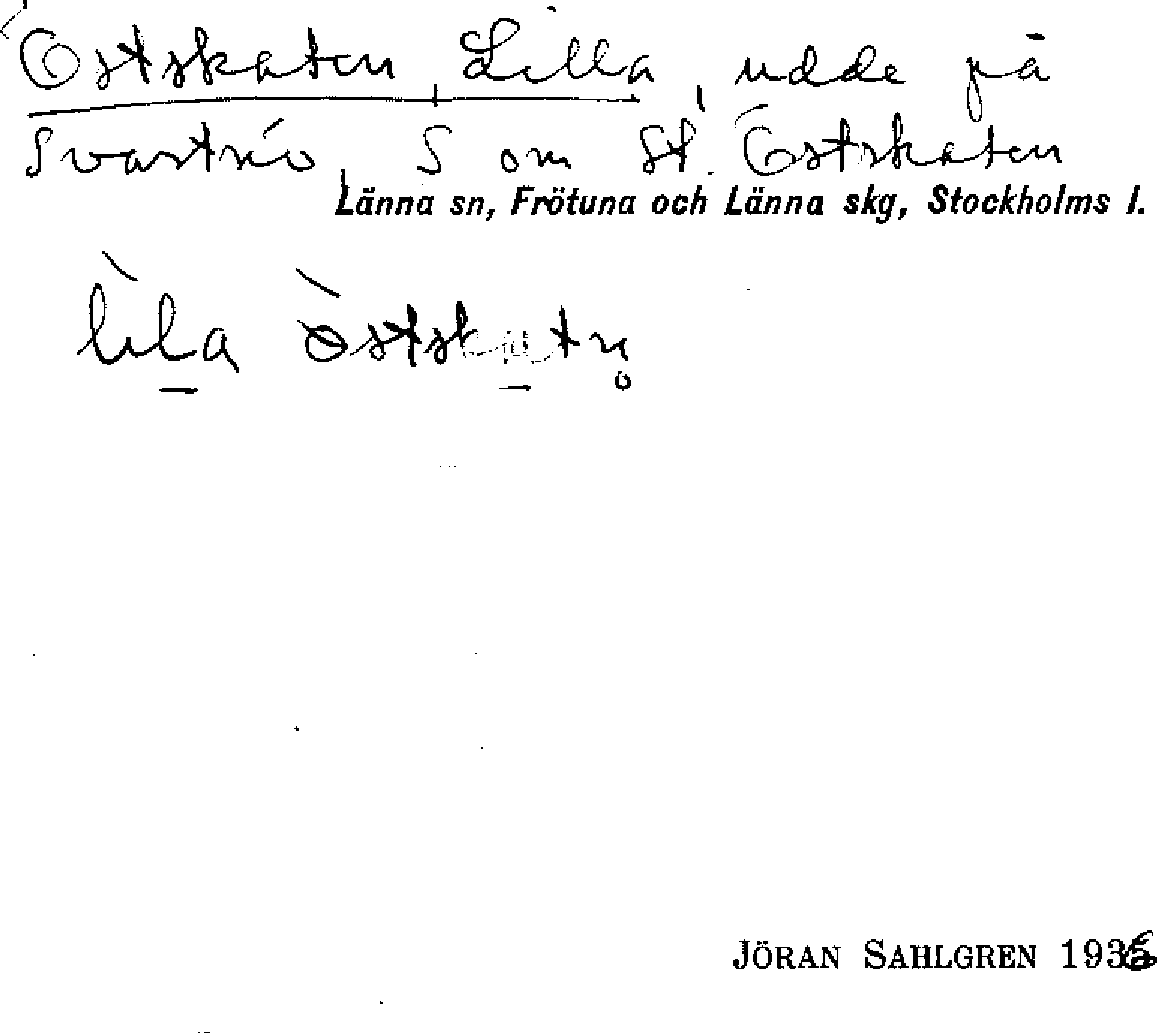 Östskaten, Lilla, udde på
Svartnö, S om St. Östskaten
Länna sn, Frötuna och Länna skg, Stockholms l.
lìla òstskatn̥
JÖRAN SAHLGREN 1936